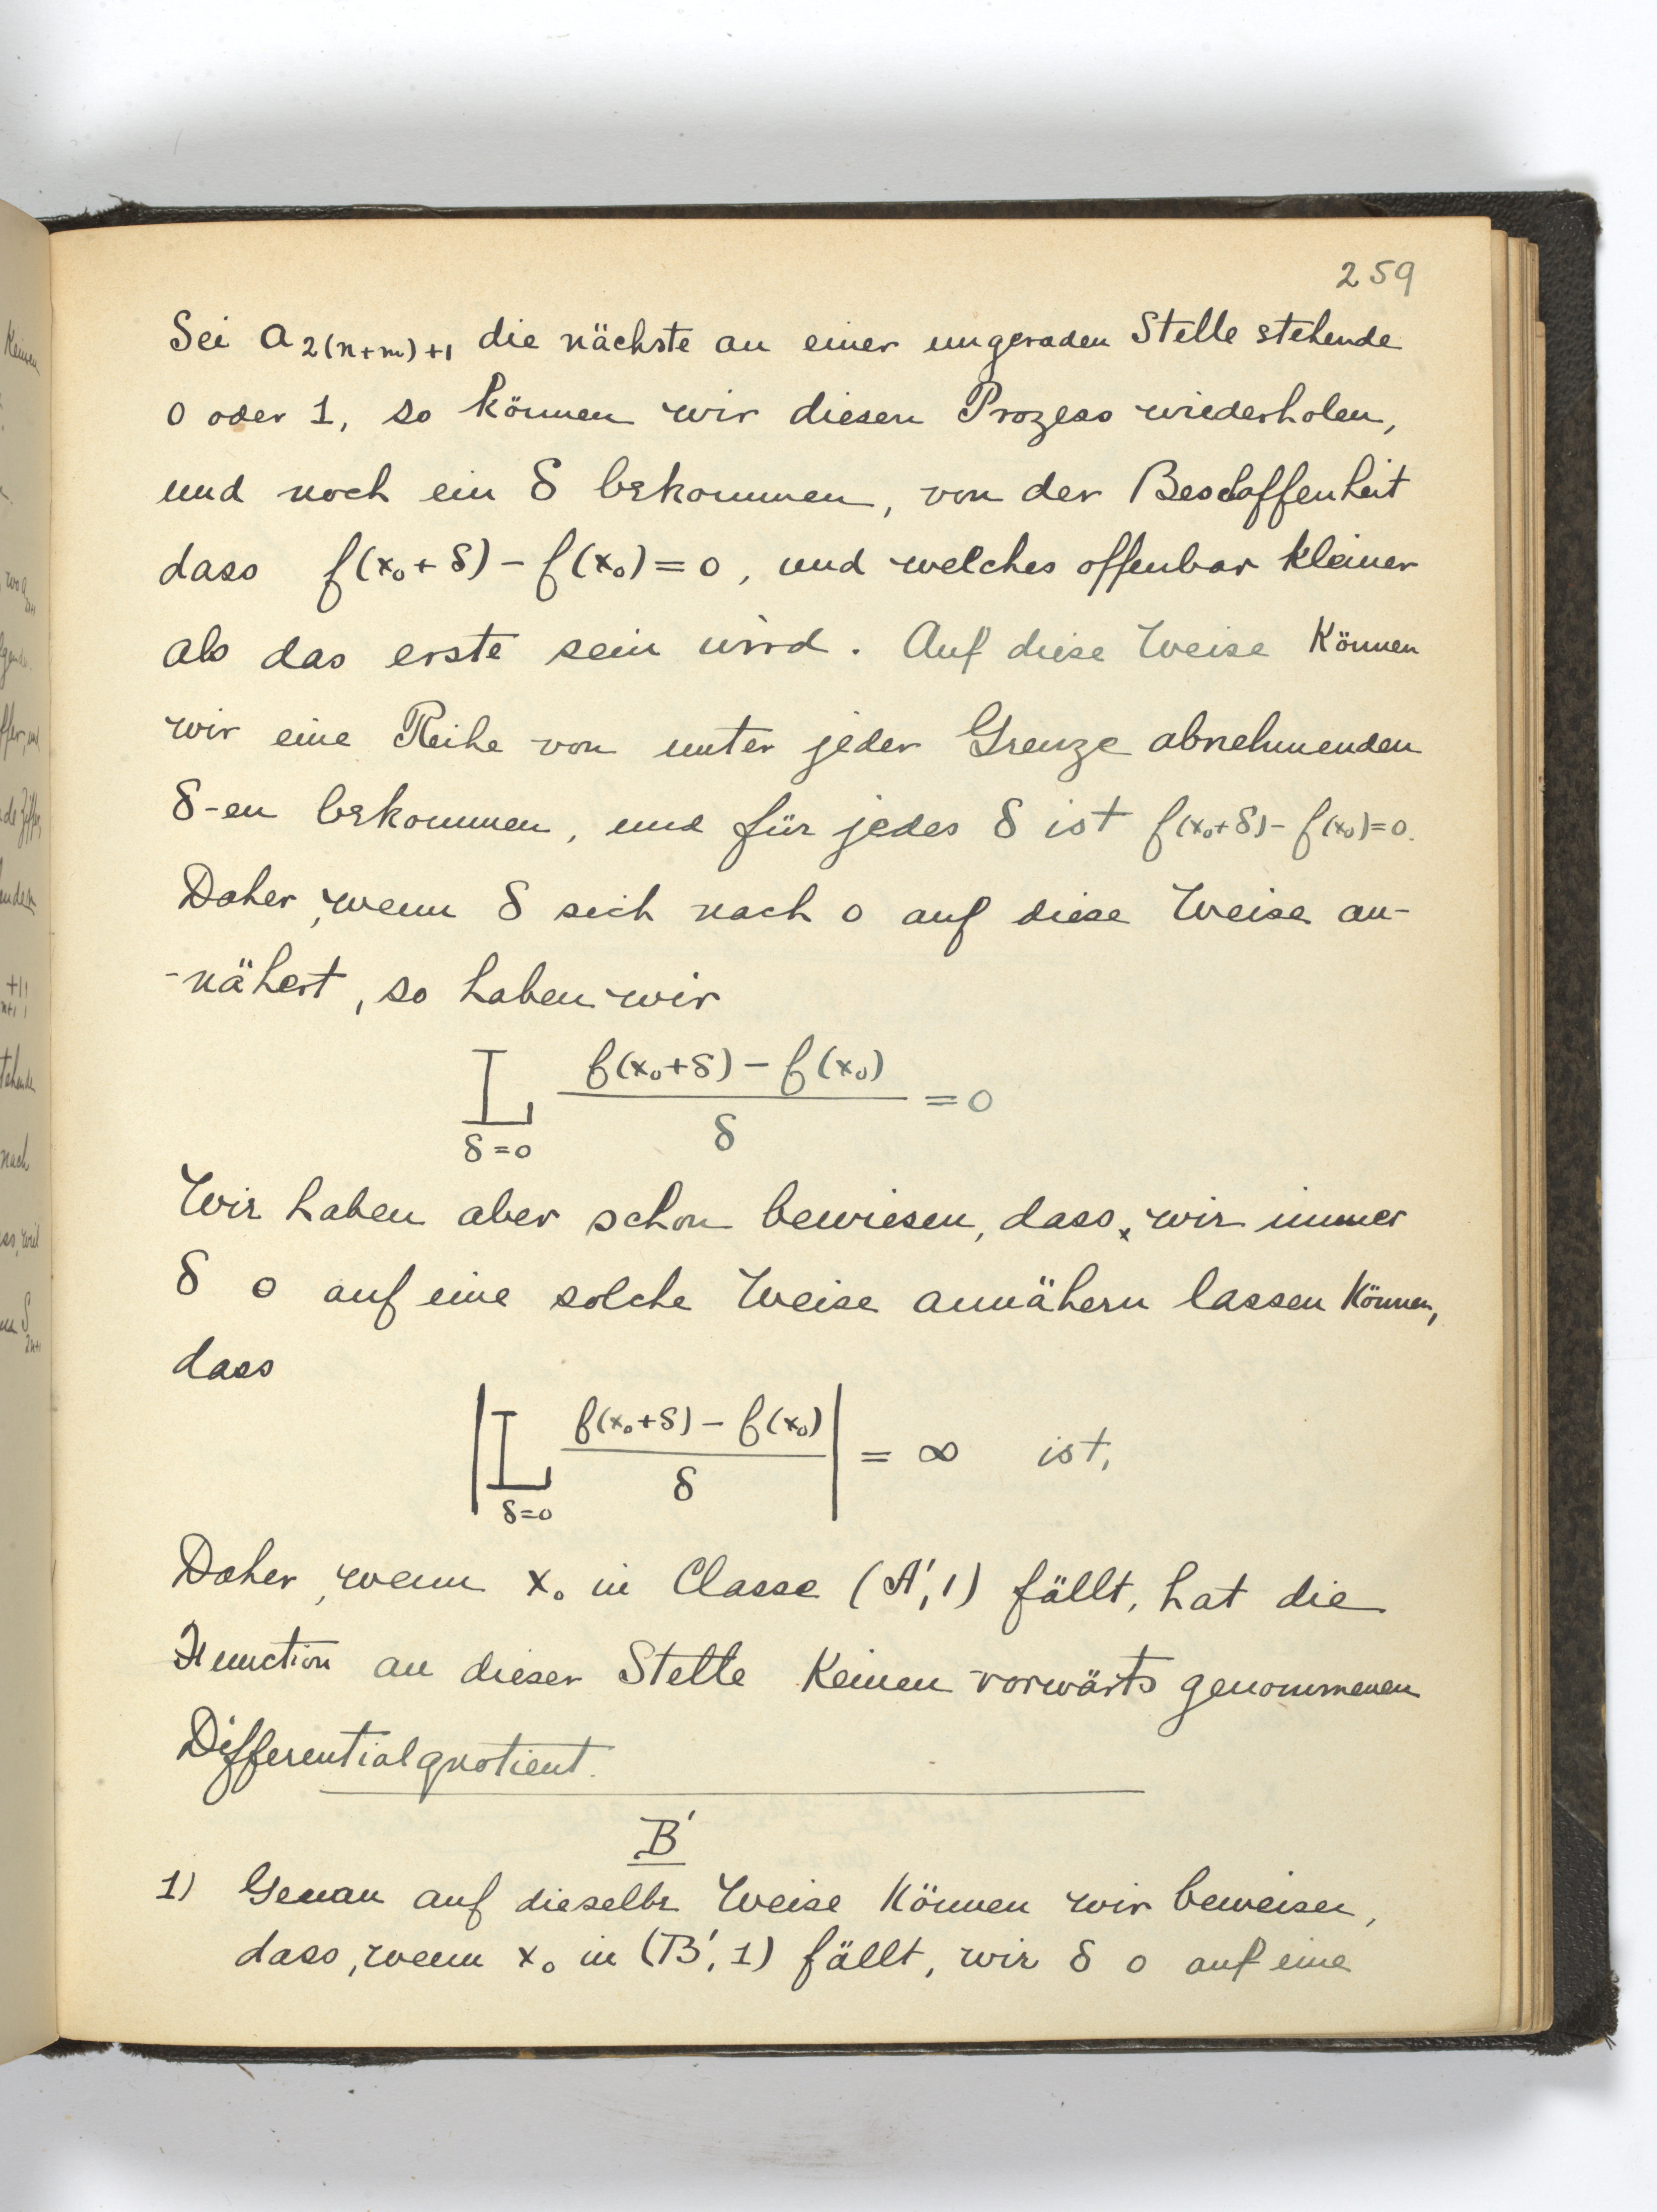 259
Sei a₂₍ₙ₊ₘ₎₊₁ die nächste an einer ungeraden Stelle stehende
0 oder 1, so können wir diesen Prozess wiederholen,
und noch ein δ bekommen, von der Beschaffenheit
dass f(x₀+δ) – f(x₀) = 0, und welches offenbar kleiner
als das erste sein wird. Auf diese Weise können
wir eine Reihe von unter jeder Grenze abnehmenden
δ-en bekommen, und für jedes δ ist f(x₀+δ) – f(x₀) = 0.
Daher, wenn δ sich nach 0 auf diese Weise an-
-nähert, so haben wir
L_{δ=0} (f(x₀+δ) – f(x₀))/δ = 0
Wir haben aber schon bewiesen, dass, wir immer
δ 0 auf eine solche Weise annähern lassen können,
dass
|L_{δ=0} (f(x₀+δ) – f(x₀))/δ| = ∞ ist,
Daher, wenn x₀ in Classe (A′, 1) fällt, hat die
Function an dieser Stelle keinen vorwärts genommenen
Differentialquotient.
B′
1) Genau auf dieselbe Weise können wir beweisen,
dass, wenn x₀ in (B′, 1) fällt, wir δ 0 auf eine